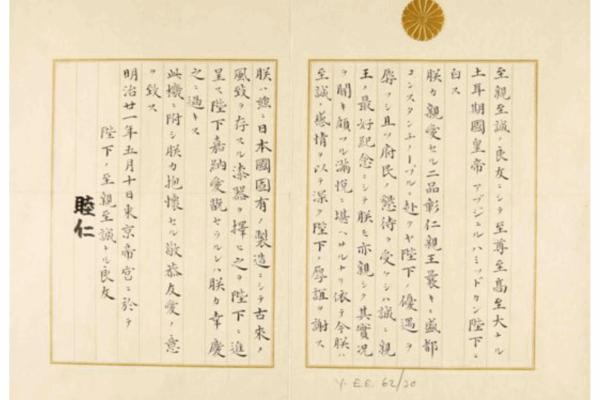 至親至誠ノ良友ニシテ至尊至高至大ナル
土耳期國皇帝アブジュルハミッドカン陛下ニ
白ス
朕カ親愛セル二品彰仁親王曩キニ盛都
コンスタンチノープルニ赴クヤ陛下ノ優遇ヲ
辱フシ且ツ府民ノ懇待ヲ受ケシハ誠ニ親
王ノ最好紀念ニシテ朕モ亦親シク其實況
ヲ聞キ頗フル滿悦ニ堪ヘサルナリ依テ今朕ハ
至誠ノ感情ヲ以テ深ク陛下ノ厚誼ヲ謝ス
朕ハ茲ニ日本國固有ノ製造ニシテ古來ノ
風致ヲ存スル漆器ヲ擇ヒ之ヲ陛下ニ進
呈ス陛下嘉納愛翫セラルレハ朕カ幸慶
之ニ過キス
此機ニ附シ朕カ抱懷セル敬恭友愛ノ意
ヲ致ス
明治廿一年五月十日東京帝宮ニ於テ
陛下ノ至親至誠ナル良友
睦仁
Y. E.E. 62/20